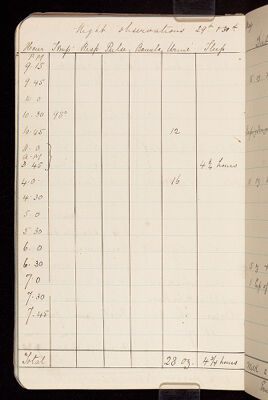 Night observations 29th & 30th
Hour Temp Resp Pulse Bowels Urine Sleep
P.M
9.15
9.45
10.30 98°
10.45 12
A.M
3.45 4½ hours
4.0 16
4.30
5.0
5.30
6.0
6.30
7.0
7.30
7.45
Total 28 oz hours